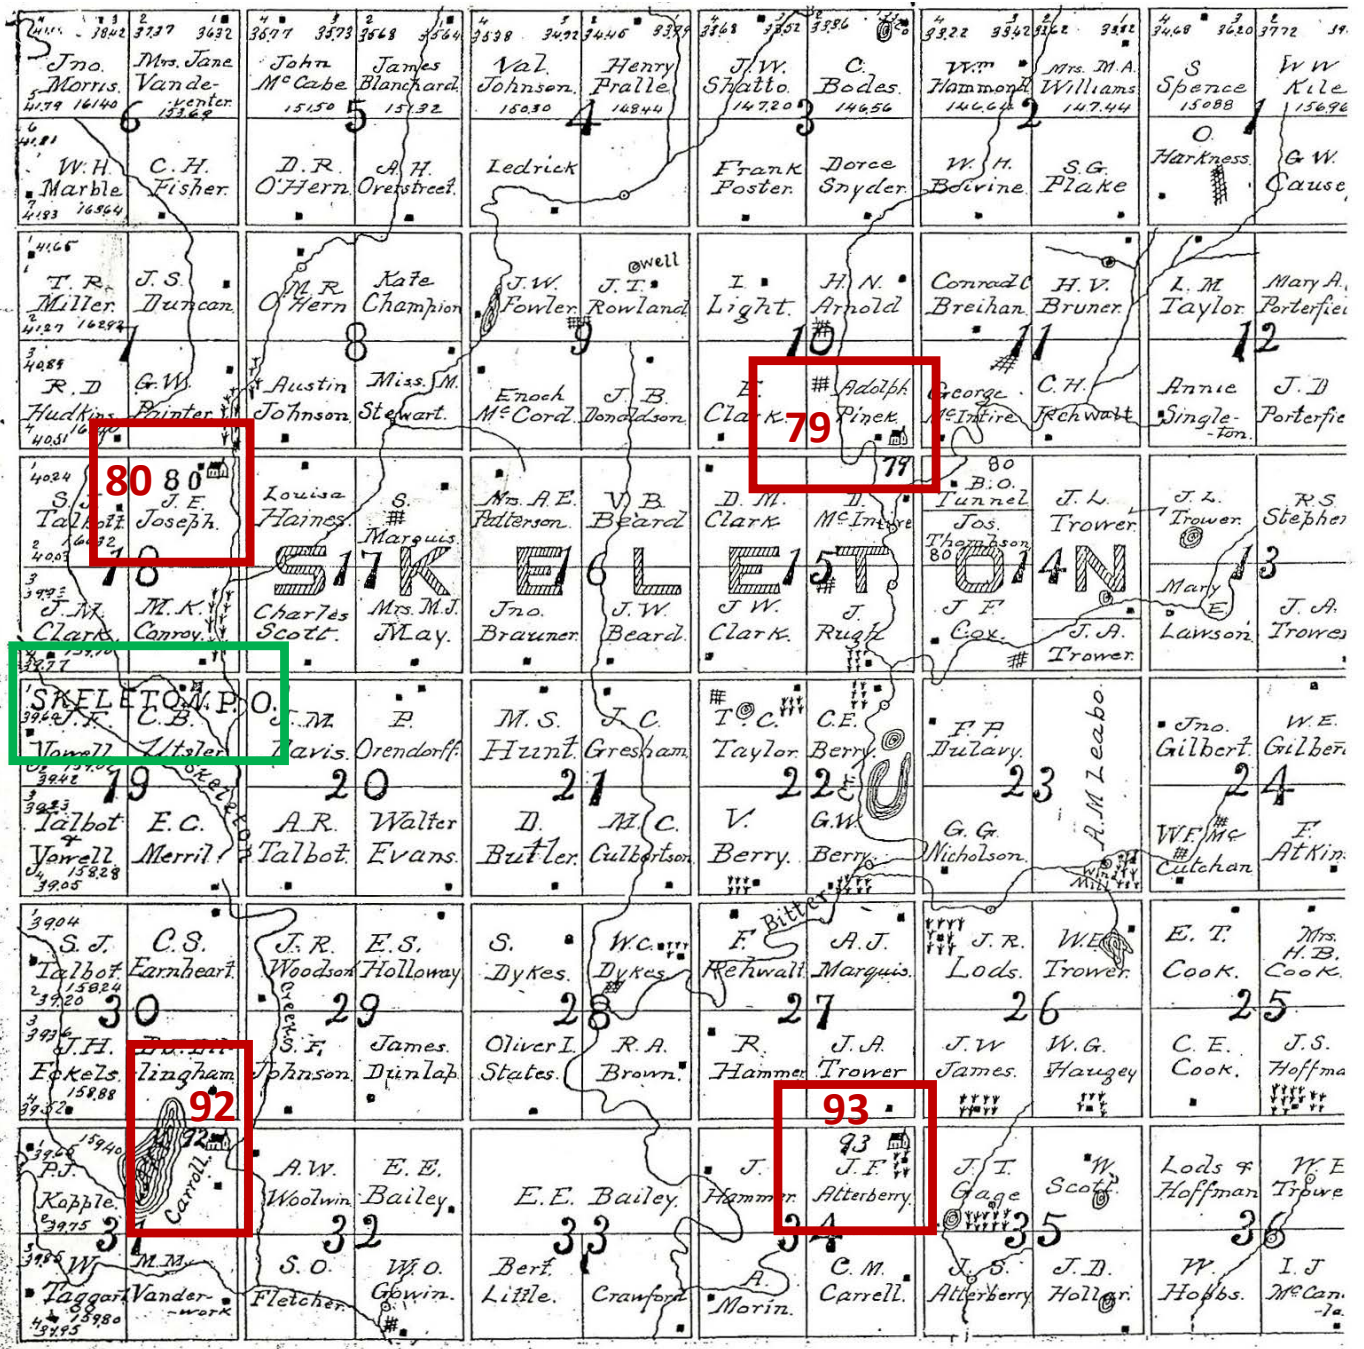 6
Jno.
Morris.
41.79 161.40
Mrs. Jane
Vande-
venter.
153.69
37.37 36.32
5
John
McCabe
151.50
James
Blanchard.
151.32
4
Val.
Johnson.
150.30
Henry
Pralle
148.44
3
J.W.
Shatto.
147.20
C.
Bodes.
146.56
2
Wm
Hammond
Mrs. M.A.
Williams
147.44
1
S
Spence
150.88
W W
Kile
W.H.
Marble
C. H.
Fisher.
D.R.
O'Hern
A.H.
Overstreet.
Ledrick
Frank
Poster.
Dorce
Snyder.
W. H.
Boivine.
S.G.
Plake
O.
Harkness.
G W.
Cause
7
T. R.
Miller.
J.S.
Duncan.
8
M.R
O'Hern
Kate
Champion
9
J.W.
Fowler.
well
J.T.
Rowland
10
I.
Light.
H.N.
Arnold
11
Conrad C
Breihan.
H.V.
Bruner.
12
L.M
Taylor.
Mary A.
Porterfie
R.D
Hudkins
G.W.
Printer
Austin
Johnson
Miss. M.
Stewart.
Enoch
McCord.
J.B.
Donaldson.
E.
Clark.
Adolph
Pinek.
79
79
George
McIntire
C.H.
Rehwalt
Annie
Single-
-ton.
J.D
Porterfie
18
S.J.
Talbott
80
80
J.E.
Joseph.
17
Louisa
Haines.
S.
Marquis.
16
Mrs. A.E.
Patterson.
V.B.
Beard
15
D.M.
Clark
D.
McIntire
14
80
B.O.
Tunnel
Jos.
Thompson
80
J.L.
Trower.
13
J.L.
Trower.
R.S
Stephe
SKELETON
J.M.
Clark.
M.K.
Conroy.
Charles
Scott.
Mrs. M.J.
May.
Jno.
Brauner.
J.W.
Beard.
J W.
Clark.
J.
Rugh
J F
Cox.
J.A.
Trower
Mary
E
Lawson.
J.A.
Trowe
SKELETON. P.O.
19
J.F.
Vowell
C.B.
Utsler
20
J.M.
Davis.
P.
Orendorff.
21
M.S.
Hunt.
J.C.
Gresham.
22
T.C.
Taylor.
C.E.
Berry.
23
F.P.
Dulavy.
A.M Leabo.
24
Jno.
Gilbert.
W.E.
Gilber
Talbot
&
Vowell.
158.28
39.05
E.C.
Merril
Skeleton
A.R.
Talbot.
Walter
Evans.
D.
Butler.
M.C.
Culbertson
V.
Berry.
G.W.
Berry.
G.G.
Nicholson.
Wind
Mill
W.F. Mc
Cutchan
F.
Atkin
30
39.04
S.J.
Talbot.
158.24
39.20
C.S.
Earnheart.
29
J.R.
Woodson
E.S.
Holloway
28
S.
Dykes.
W.C.
Dykes
27
Bitter
F.
Rehwalt.
A.J.
Marquis.
26
J.R.
Lods.
W.E.
Trower.
25
E.T.
Cook.
Mrs.
H.B.
Cook
J.H.
Eckels.
158.88
lingham
Creek
S.F.
Johnson.
James.
Dunlap
Oliver I.
States.
R.A.
Brown.
R.
Hammer
J.A.
Trower
J.W
James.
W.G.
Haugey
C.E.
Cook.
J.S.
Hoffma
31
159.40
P.J.
Kopple.
39.75
92
92
Carroll.
32
A.W.
Woolwin
E.E.
Bailey.
33
E.E. Bailey.
34
J.
Hammer.
93
93
J.F.
Atterberry
35
J.T.
Gage
W.
Scott.
36
Lods &
Hoffman
W.E
Trowe
W.
Taggart
159.80
M.M.
Vander-
-work
S.O.
Fletcher.
W.O.
Gowin.
Bert.
Little.
Crawford
A.
Morin.
C.M.
Carrell.
J.S.
Atterberry
J.D.
Hollar.
W.
Hobbs.
I.J
McCan-
-la